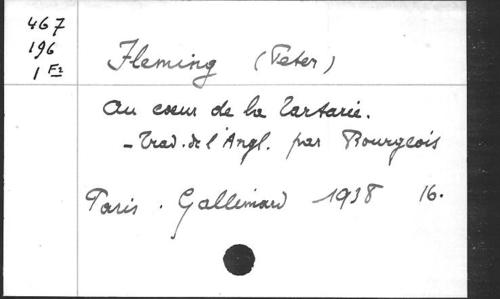 467
196
1 F2
Fleming (Peter)
Au coeur de la Tartarie.
- Trad. de l'Angl. par Bourgeois
Paris . Gallimard 1938 16.